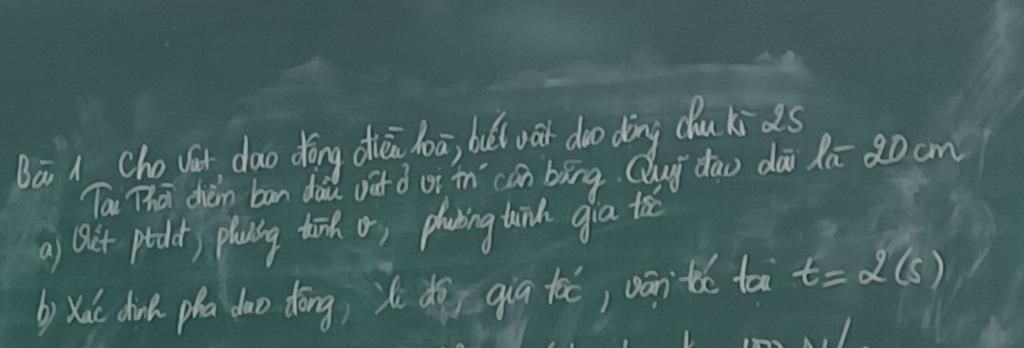 Bài 1 Cho vật, dao động điều hoà, biết vật dao động chu kì 2s
Tại Thời điểm ban đầu vật ở vị trí cân bằng. Quỹ đạo dài là 20 cm
a) Viết ptdđ, phương trình v, phương trình gia tốc
b) Xác định pha dao động, li độ, gia tốc, vận tốc tại t = 2(s)